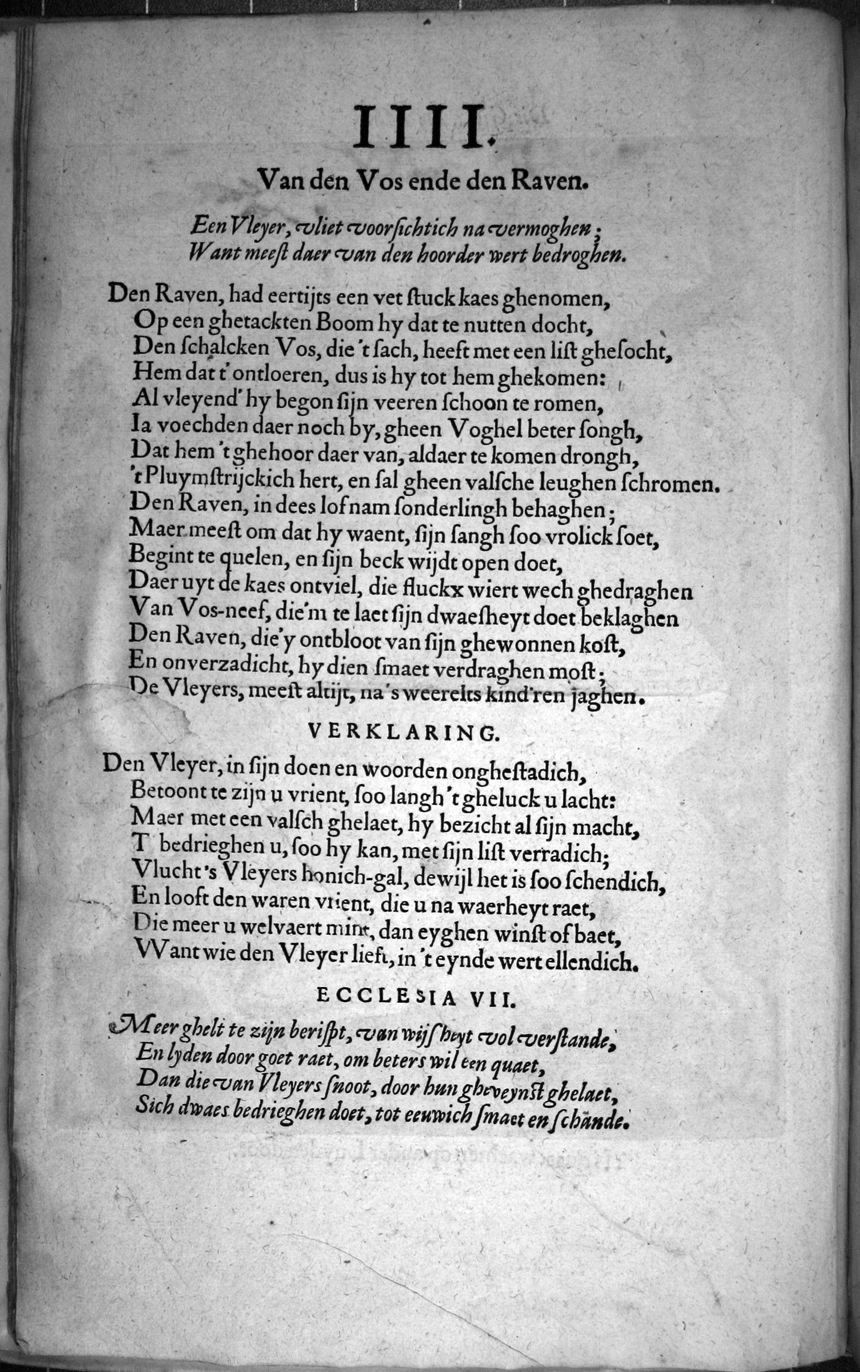 IIII.
Van den Vos ende den Raven.
Een Vleyer, vliet voorſichtich na vermoghen;
Want meeſt daer van den hoorder wert bedroghen.
Den Raven, had eertijts een vet ſtuck kaes ghenomen,
Op een ghetackten Boom hy dat te nutten docht,
Den ſchalcken Vos, die 't ſach, heeft met een liſt gheſocht,
Hem dat t' ontloeren, dus is hy tot hem ghekomen:
Al vleyend' hy begon ſijn veeren ſchoon te romen,
Ia voechden daer noch by, gheen Voghel beter ſongh,
Dat hem 't ghehoor daer van, aldaer te komen drongh,
't Pluymſtrijckich hert, en ſal gheen valſche leughen ſchromen.
Den Raven, in dees lof nam ſonderlingh behaghen;
Maer meeſt om dat hy waent, ſijn ſangh ſoo vrolick ſoet,
Begint te quelen, en ſijn beck wijdt open doet,
Daer uyt de kaes ontviel, die fluckx wiert wech ghedraghen
Van Vos-neef, die'm te laet ſijn dwaeſheyt doet beklaghen
Den Raven, die'y ontbloot van ſijn ghewonnen koſt,
En onverzadicht, hy dien ſmaet verdraghen moſt;
De Vleyers, meeſt altijt, na 's weerelts kind'ren jaghen.
VERKLARING.
Den Vleyer, in ſijn doen en woorden ongheſtadich,
Betoont te zijn u vrient, ſoo langh 't gheluck u lacht:
Maer met een valſch ghelaet, hy bezicht al ſijn macht,
T' bedrieghen u, ſoo hy kan, met ſijn liſt verradich;
Vlucht 's Vleyers honich-gal, dewijl het is ſoo ſchendich,
En looft den waren vrient, die u na waerheyt raet,
Die meer u welvaert mint, dan eyghen winſt of baet,
VVant wie den Vleyer lieft, in 't eynde wert ellendich.
ECCLESIA VII.
Meer ghelt te zijn beriſpt, van wijſheyt vol verſtande,
En lyden door goet raet, om beters wil een quaet,
Dan die van Vleyers ſnoot, door hun gheveynſt ghelaet,
Sich dwaes bedrieghen doet, tot eeuwich ſmaet en ſchande.